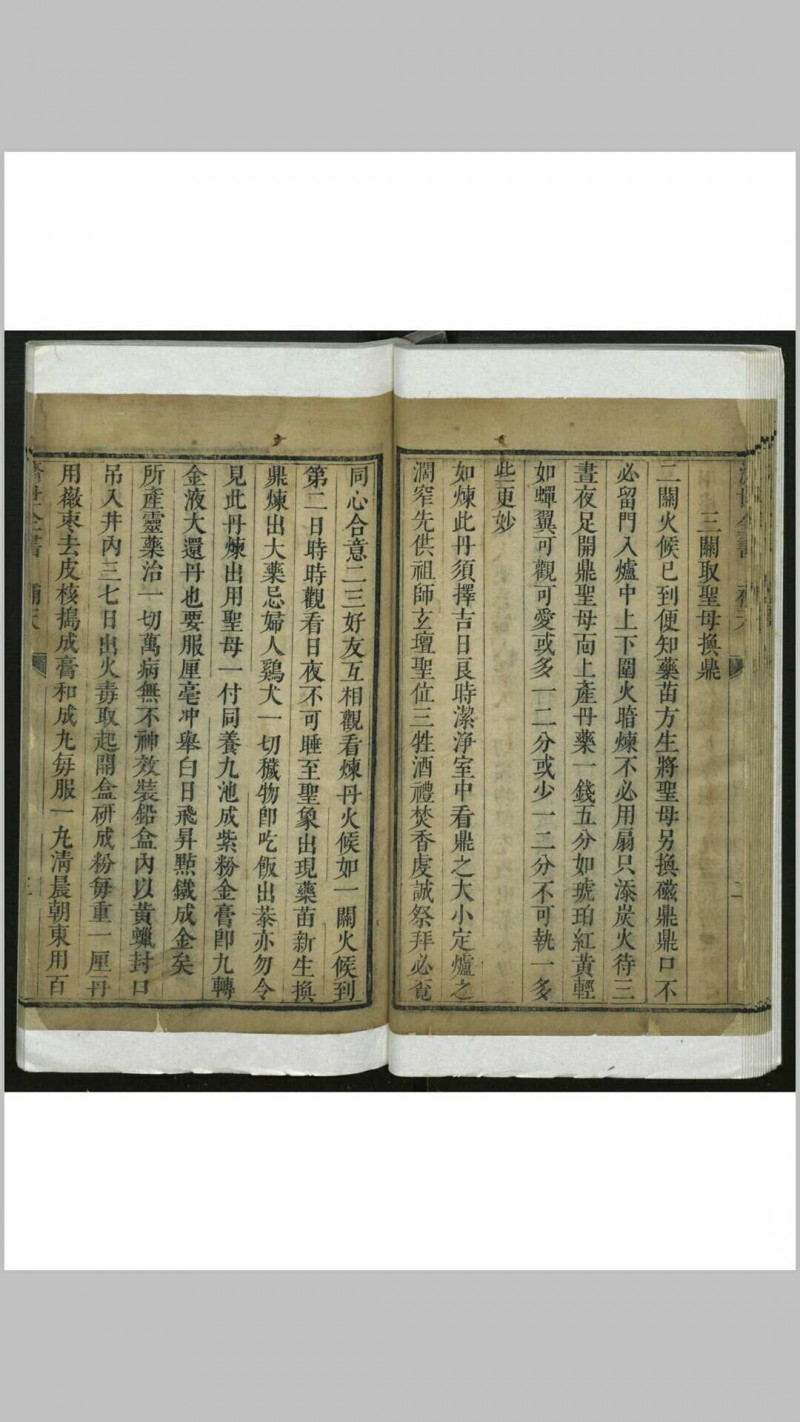 三關取聖母換鼎
二關火候已到便知藥苗方生將聖母另換磁鼎鼎口不
必留門入爐中上下圍火暗煉不必用扇只添炭火待三
晝夜足開鼎聖母面上產丹藥一錢五分如琥珀紅黃輕
如蟬翼可觀可愛或多一二分或少一二分不可執一多
些更妙
如煉此丹須擇吉日良時潔淨室中看鼎之大小定爐之
濶窄先供祖師玄壇聖位三牲酒禮焚香虔誠祭拜必竟
同心合意二三好友互相觀看煉丹火候如一關火候到
第二日時時觀看日夜不可睡至聖象出現藥苗新生換
鼎煉出大藥忌婦人鷄犬一切穢物即吃飯出恭亦勿令
見此丹煉出用聖母一付同養九池成紫粉金膏即九轉
金液大還丹也要服厘毫冲舉白日飛昇點鐵成金矣
所產靈藥治一切萬病無不神效裝鉛盒內以黃蠟封口
吊入井內三七日出火毒取起開盒研成粉每重一厘丹
用𣖙棗去皮核搗成膏和成九每服一九清晨朝東用百
濟世全書 補天